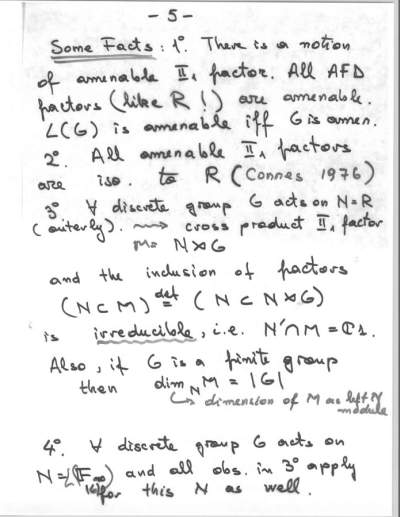 - 5 -
Some Facts : 1°. There is a notion
of amenable II₁ factor. All AFD
factors (like R !) are amenable.
L(G) is amenable iff G is amen.
2°. All amenable II₁ factors
are iso. to R (Connes 1976)
3° ∀ discrete group G acts on N=R
(outerly). ⟿ cross product II₁ factor
M= N⋊G
and the inclusion of factors
(N⊂M) def= (N ⊂ N⋊G)
is irreducible, i.e. N'∩M = ℂ1.
Also, if G is a finite group
then dim_N M = |G|
↳ dimension of M as left N
module
4°. ∀ discrete group G acts on
N=L(𝔽∞) and all obs. in 3° apply
|G| for this N as well.